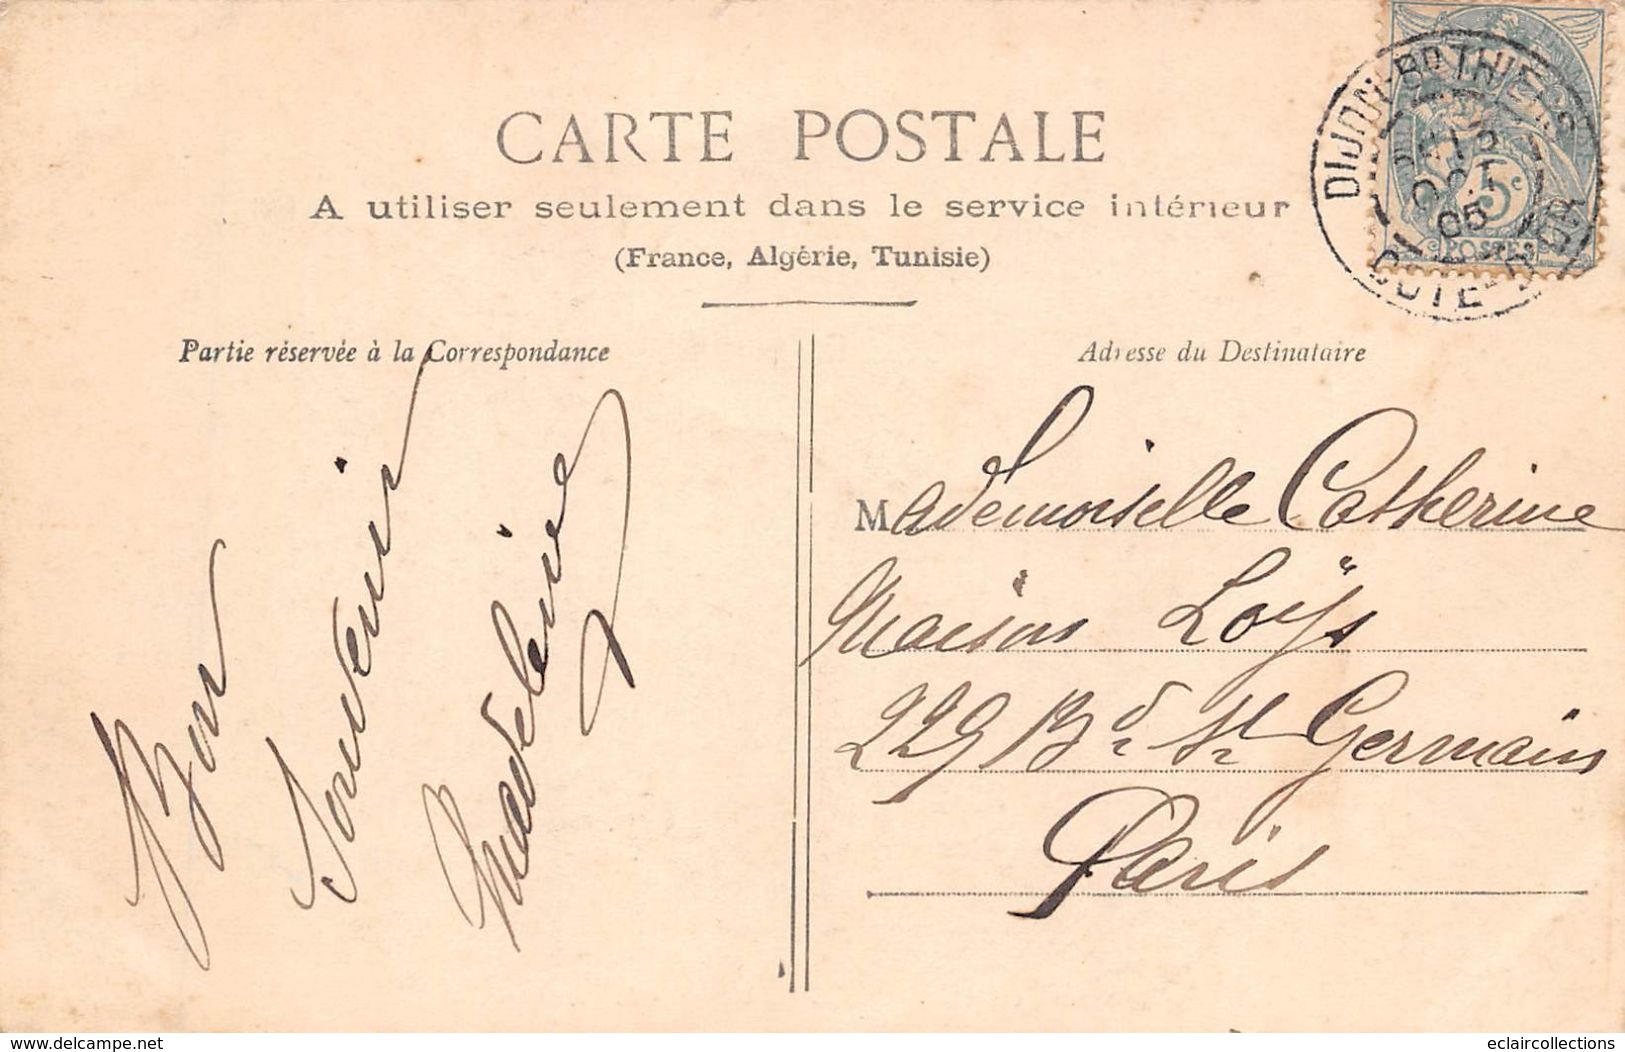 CARTE POSTALE
A utiliser seulement dans le service intérieur
(France, Algérie, Tunisie)
Partie réservée à la Correspondance
Bon
Souvenir
Madeleine
Adresse du Destinataire
Mademoiselle Catherine
Maison Loÿs
229 Bd St Germain
Paris
DIJON-BD THIERS
OCT
05
COTE-D'OR
5c
POSTES
www.delcampe.net
eclaircollections